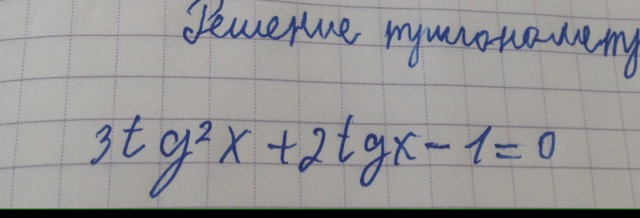 Решение тригономету
3tg²x + 2tgx - 1 = 0